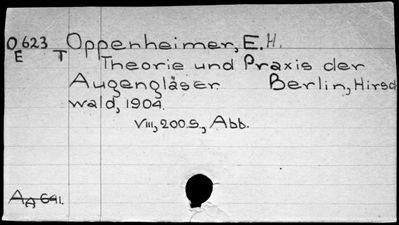 O623 Oppenheimer, E.H.
E T Theorie und Praxis der
Augengläser Berlin, Hirsch
wald, 1904.
VIII, 200 S., Abb.
AA 691.